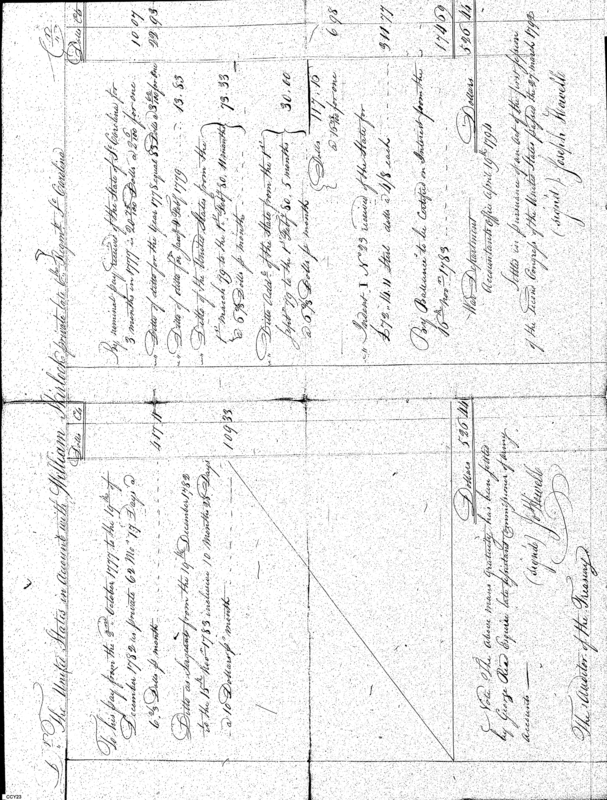 Dr. The United States in Account with William Shirlock private late 6th Regimt So Carolina Cr.
Dolls Cts
To his pay from the 3rd October 1777 to the 19th of
December 1782 as private 62 Mos 17 Days @
6⅔ Dolls p month 417.11
Ditto as Sergeant from the 19th December 1782
to the 15th Novr 1783 inclusive 10 Months 28 Days
@ 10 Dollars p month 109 33
Dollars 526.44
Note The above mans Gratuity has been settled
by George Reid Esquire late Assistant Commissioner of Army
accounts
(signed) Jos Howell
The Auditor of the Treasury
Dolls Cts
By nominal pay received of the State of So Carolina for
3 months in 1777 is Dolls @ for one 10 07
Ditto of ditto for the Year 1778 equal Dolls @ for one 22 93
Ditto of ditto for 1779 13.83
Ditto of the United States from the
1st March 79 to the 1st 80, 11 months
@ 6⅔ Dolls p month 73.33
Ditto Addl of the State from the 1st
79 to the 1st 80. 5 months
@ Dolls p month 30.00
Dolls 117.15
@ for one 6 98
Indent I No 33 received of the State for
£72.14.11 Sterl dolls @ 4/8 each 311.77
Pay Balance to be Certified on Interest from the
15th novr 1783 174 59
Dollars 526 44
War Department
Accountants office April 19th 1794
Settled in pursuance of an Act of the first session
of the second Congress of the United States passed the 27 March 1792
(signed) Joseph Howell
CCY23